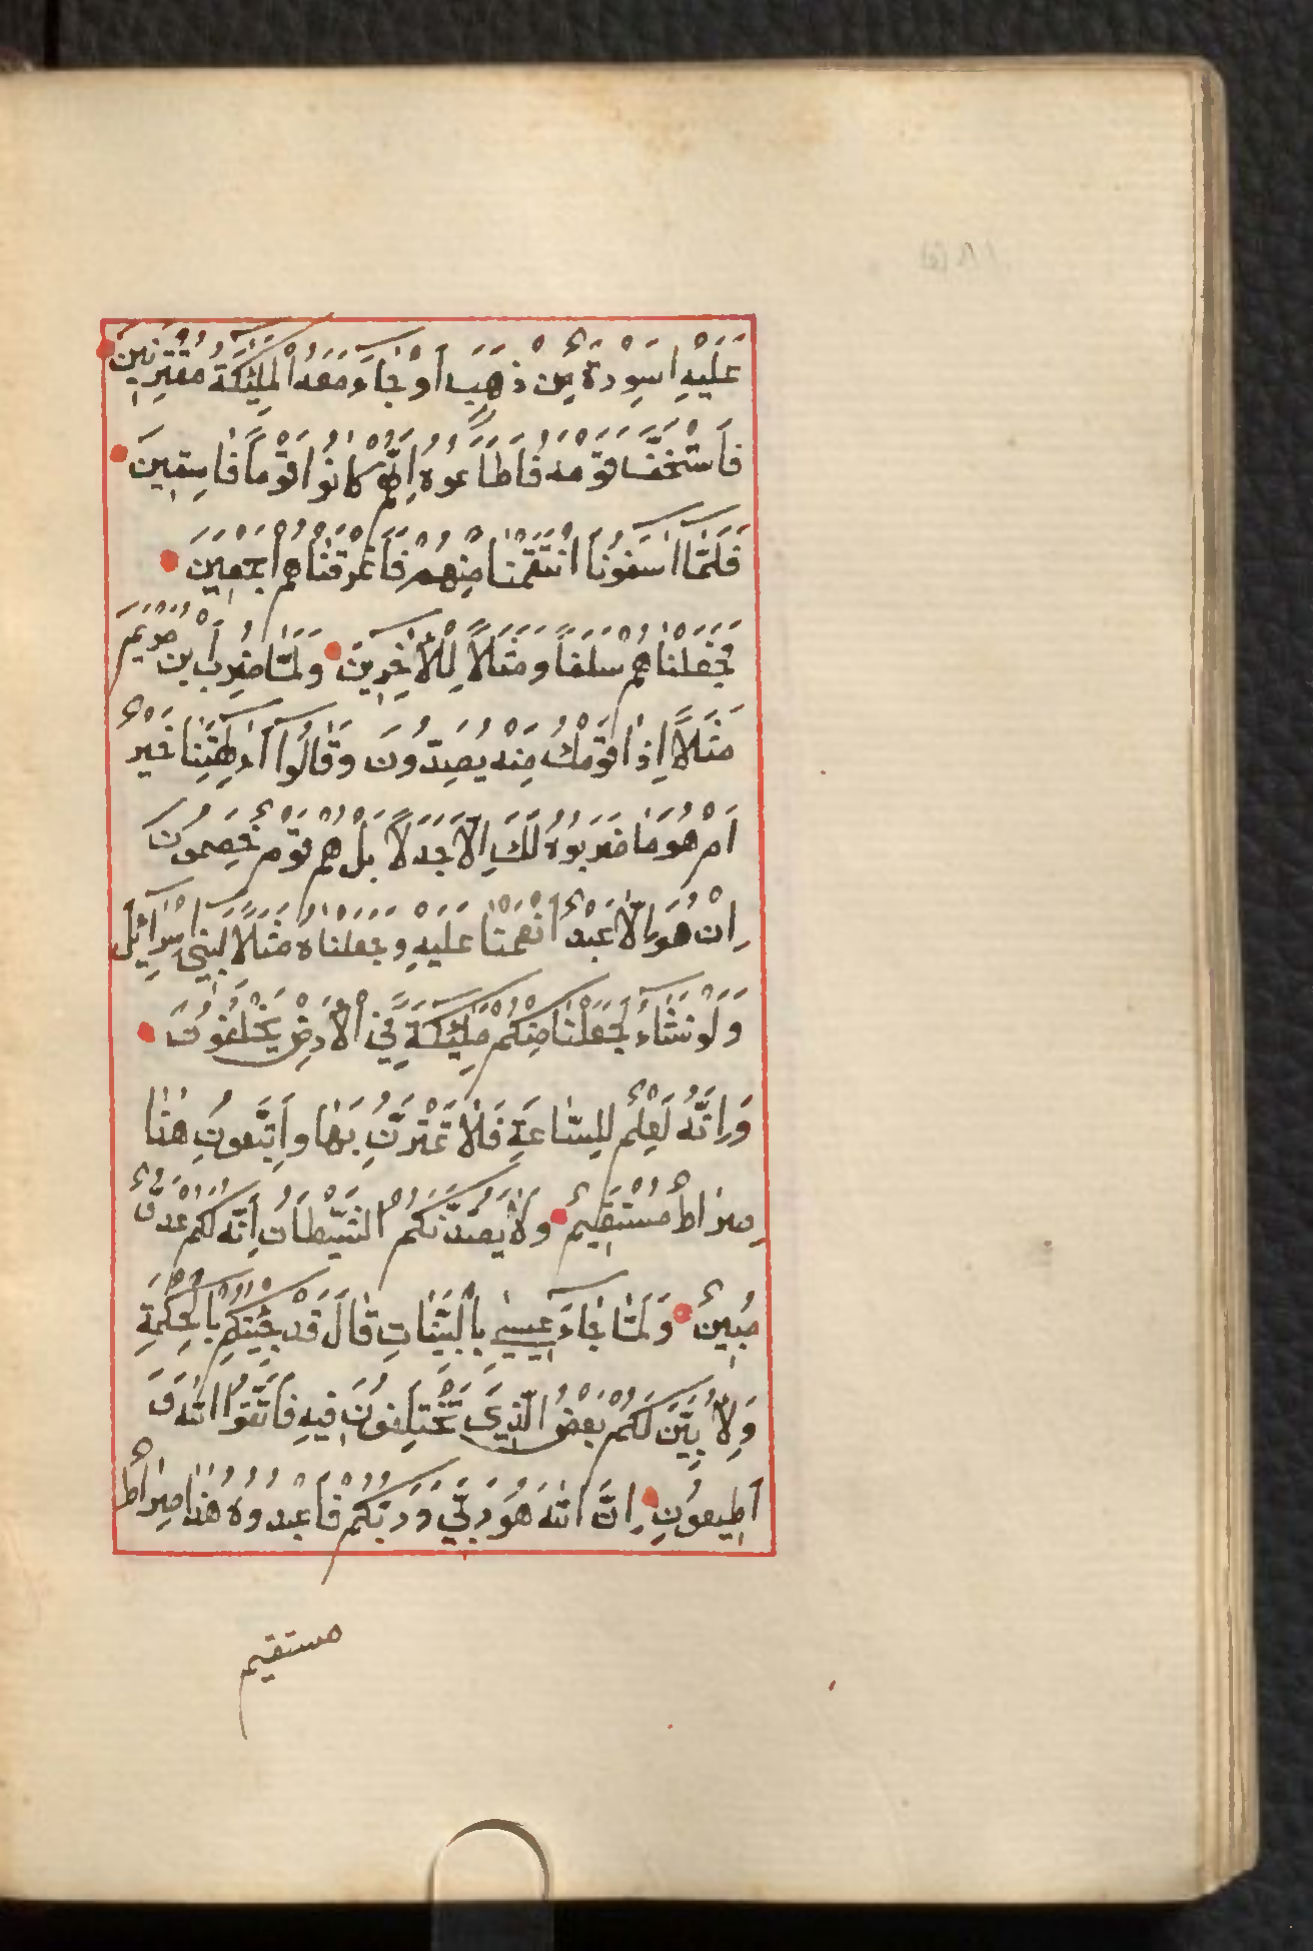 عَلَيْهِ اَسْوِرَةٌ مِنْ ذَهَبٍ اَوْ جَٓاءَ مَعَهُ الْمَلٰٓئِكَةُ مُقْتَرِنٖينَ
فَاسْتَخَفَّ قَوْمَهُ فَاَطَاعُوهُ اِنَّهُمْ كَانُوا قَوْمًا فَاسِقٖينَ
فَلَمَّٓا اٰسَفُونَا انْتَقَمْنَا مِنْهُمْ فَاَغْرَقْنَاهُمْ اَجْمَعٖينَ
فَجَعَلْنَاهُمْ سَلَفًا وَمَثَلًا لِلْاٰخِرٖينَ وَلَمَّا ضُرِبَ ابْنُ مَرْيَمَ
مَثَلًا اِذَا قَوْمُكَ مِنْهُ يَصِدُّونَ وَقَالُٓوا ءَاٰلِهَتُنَا خَيْرٌ
اَمْ هُوَ مَا ضَرَبُوهُ لَكَ اِلَّا جَدَلًا بَلْ هُمْ قَوْمٌ خَصِمُونَ
اِنْ هُوَ اِلَّا عَبْدٌ اَنْعَمْنَا عَلَيْهِ وَجَعَلْنَاهُ مَثَلًا لِبَنٖٓي اِسْرَٓائٖلَ
وَلَوْ نَشَٓاءُ لَجَعَلْنَا مِنْكُمْ مَلٰٓئِكَةً فِي الْاَرْضِ يَخْلُفُونَ
وَاِنَّهُ لَعِلْمٌ لِلسَّاعَةِ فَلَا تَمْتَرُنَّ بِهَا وَاتَّبِعُونِ هٰذَا
صِرَاطٌ مُسْتَقٖيمٌ وَلَا يَصُدَّنَّكُمُ الشَّيْطَانُ اِنَّهُ لَكُمْ عَدُوٌّ
مُبٖينٌ وَلَمَّا جَٓاءَ عٖيسٰى بِالْبَيِّنَاتِ قَالَ قَدْ جِئْتُكُمْ بِالْحِكْمَةِ
وَلِاُبَيِّنَ لَكُمْ بَعْضَ الَّذٖي تَخْتَلِفُونَ فٖيهِ فَاتَّقُوا اللّٰهَ وَ
اَطٖيعُونِ اِنَّ اللّٰهَ هُوَ رَبّٖي وَرَبُّكُمْ فَاعْبُدُوهُ هٰذَا صِرَاطٌ
مستقيم